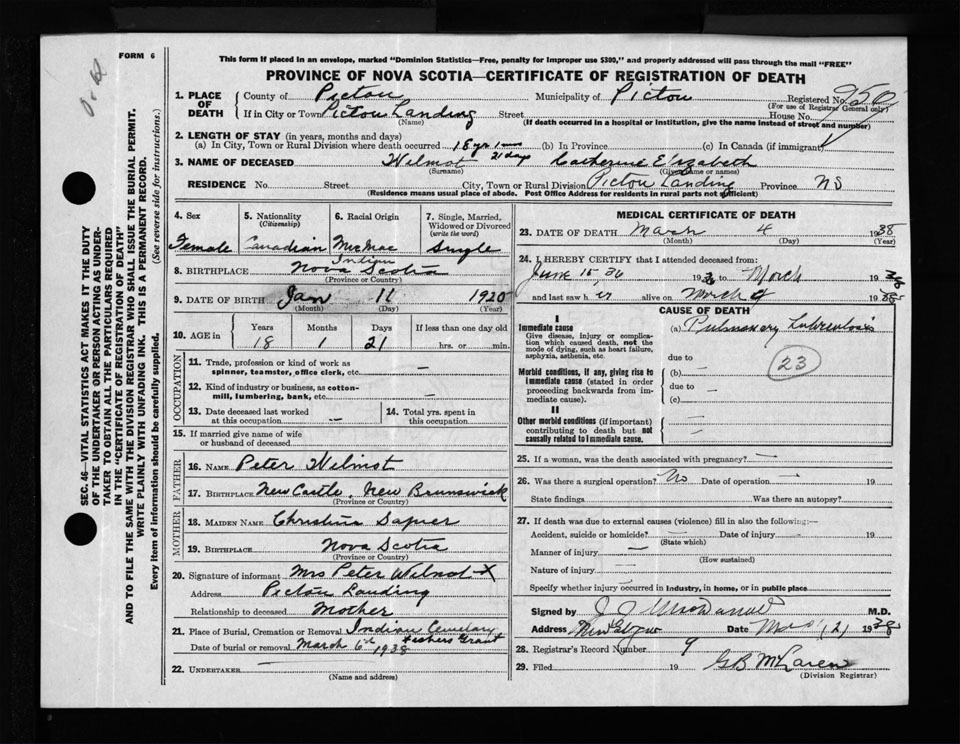 FORM 6
This form if placed in an envelope, marked "Dominion Statistics—Free, penalty for improper use $300," and properly addressed will pass through the mail "FREE"
PROVINCE OF NOVA SCOTIA—CERTIFICATE OF REGISTRATION OF DEATH
1. PLACE OF DEATH { County of Pictou Municipality of Pictou Registered No. 950
(For use of Registrar General only)
If in City or Town Pictou Landing Street House No.
(Name) (If death occurred in a hospital or institution, give the name instead of street and number)
2. LENGTH OF STAY (in years, months and days)
(a) In City, Town or Rural Division where death occurred 18 yr 1 mo 21 days (b) In Province (c) In Canada (if immigrant)
3. NAME OF DECEASED Wilmot Catherine Elizabeth
(Surname) (Given name or names)
RESIDENCE No. Street City, Town or Rural Division Pictou Landing Province NS
(Residence means usual place of abode. Post Office Address for residents in rural parts not sufficient)
4. Sex
Female
5. Nationality
(Citizenship)
Canadian
6. Racial Origin
McMac
Indian
7. Single, Married, Widowed or Divorced
(write the word)
Single
8. BIRTHPLACE Nova Scotia
(Province or Country)
9. DATE OF BIRTH Jan 11 1920
(Month) (Day) (Year)
10. AGE in
Years Months Days If less than one day old
18 1 21 hrs. or min.
OCCUPATION
11. Trade, profession or kind of work as spinner, teamster, office clerk, etc. —
12. Kind of industry or business, as cotton-mill, lumbering, bank, etc. —
13. Date deceased last worked at this occupation —
14. Total yrs. spent in this occupation
15. If married give name of wife or husband of deceased
FATHER
16. NAME Peter Wilmot
17. BIRTHPLACE New Castle, New Brunswick
(Province or Country)
MOTHER
18. MAIDEN NAME Christina
19. BIRTHPLACE Nova Scotia
(Province or Country)
20. Signature of informant Mrs Peter Wilmot X
Address Pictou Landing
Relationship to deceased Mother
21. Place of Burial, Cremation or Removal Indian Cemetery Fishers Grant
Date of burial or removal March 6th 1938
22. UNDERTAKER —
(Name and address)
MEDICAL CERTIFICATE OF DEATH
23. DATE OF DEATH March 4 1938
(Month) (Day) (Year)
24. I HEREBY CERTIFY that I attended deceased from:
June 15 36 1936 to March 1938
and last saw her alive on March 4 1938
CAUSE OF DEATH
I
Immediate cause
Give disease, injury or complication which caused death, not the mode of dying, such as heart failure, asphyxia, asthenia, etc.
(a) Pulmonary Tuberculosis
23
due to
Morbid conditions, if any, giving rise to immediate cause (stated in order proceeding backwards from immediate cause).
(b) —
due to —
(c)
II
Other morbid conditions (if important) contributing to death but not causally related to immediate cause.
25. If a woman, was the death associated with pregnancy? —
26. Was there a surgical operation? No Date of operation — 19
State findings Was there an autopsy?
27. If death was due to external causes (violence) fill in also the following:—
Accident, suicide or homicide? Date of injury 19
(State which)
Manner of injury —
(How sustained)
Nature of injury —
Specify whether injury occurred in industry, in home, or in public place
Signed by M.D.
Address New Glasgow Date 1938
28. Registrar's Record Number 9
29. Filed 19 G B McLaren
(Division Registrar)
SEC. 46—VITAL STATISTICS ACT MAKES IT THE DUTY
OF THE UNDERTAKER OR PERSON ACTING AS UNDER-
TAKER TO OBTAIN ALL THE PARTICULARS REQUIRED
IN THE "CERTIFICATE OF REGISTRATION OF DEATH"
AND TO FILE THE SAME WITH THE DIVISION REGISTRAR WHO SHALL ISSUE THE BURIAL PERMIT.
WRITE PLAINLY WITH UNFADING INK. THIS IS A PERMANENT RECORD.
Every item of information should be carefully supplied. (See reverse side for instructions.)